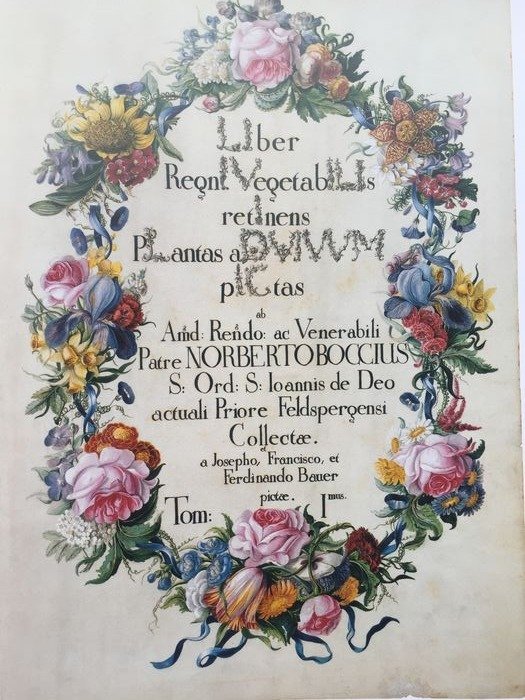 LIber
RegnI VegetabILIs
retInens
PLantas aD VIVVM
pICtas
ab
Am̃d: Reñdo: ac Venerabili
Patre NORBERTO BOCCIUS
S: Ord: S: Ioannis de Deo
actuali Priore Feldspergensi
Collectæ.
et
a Josepho, Francisco, et
Ferdinando Bauer
pictæ.
Tom: I mus.